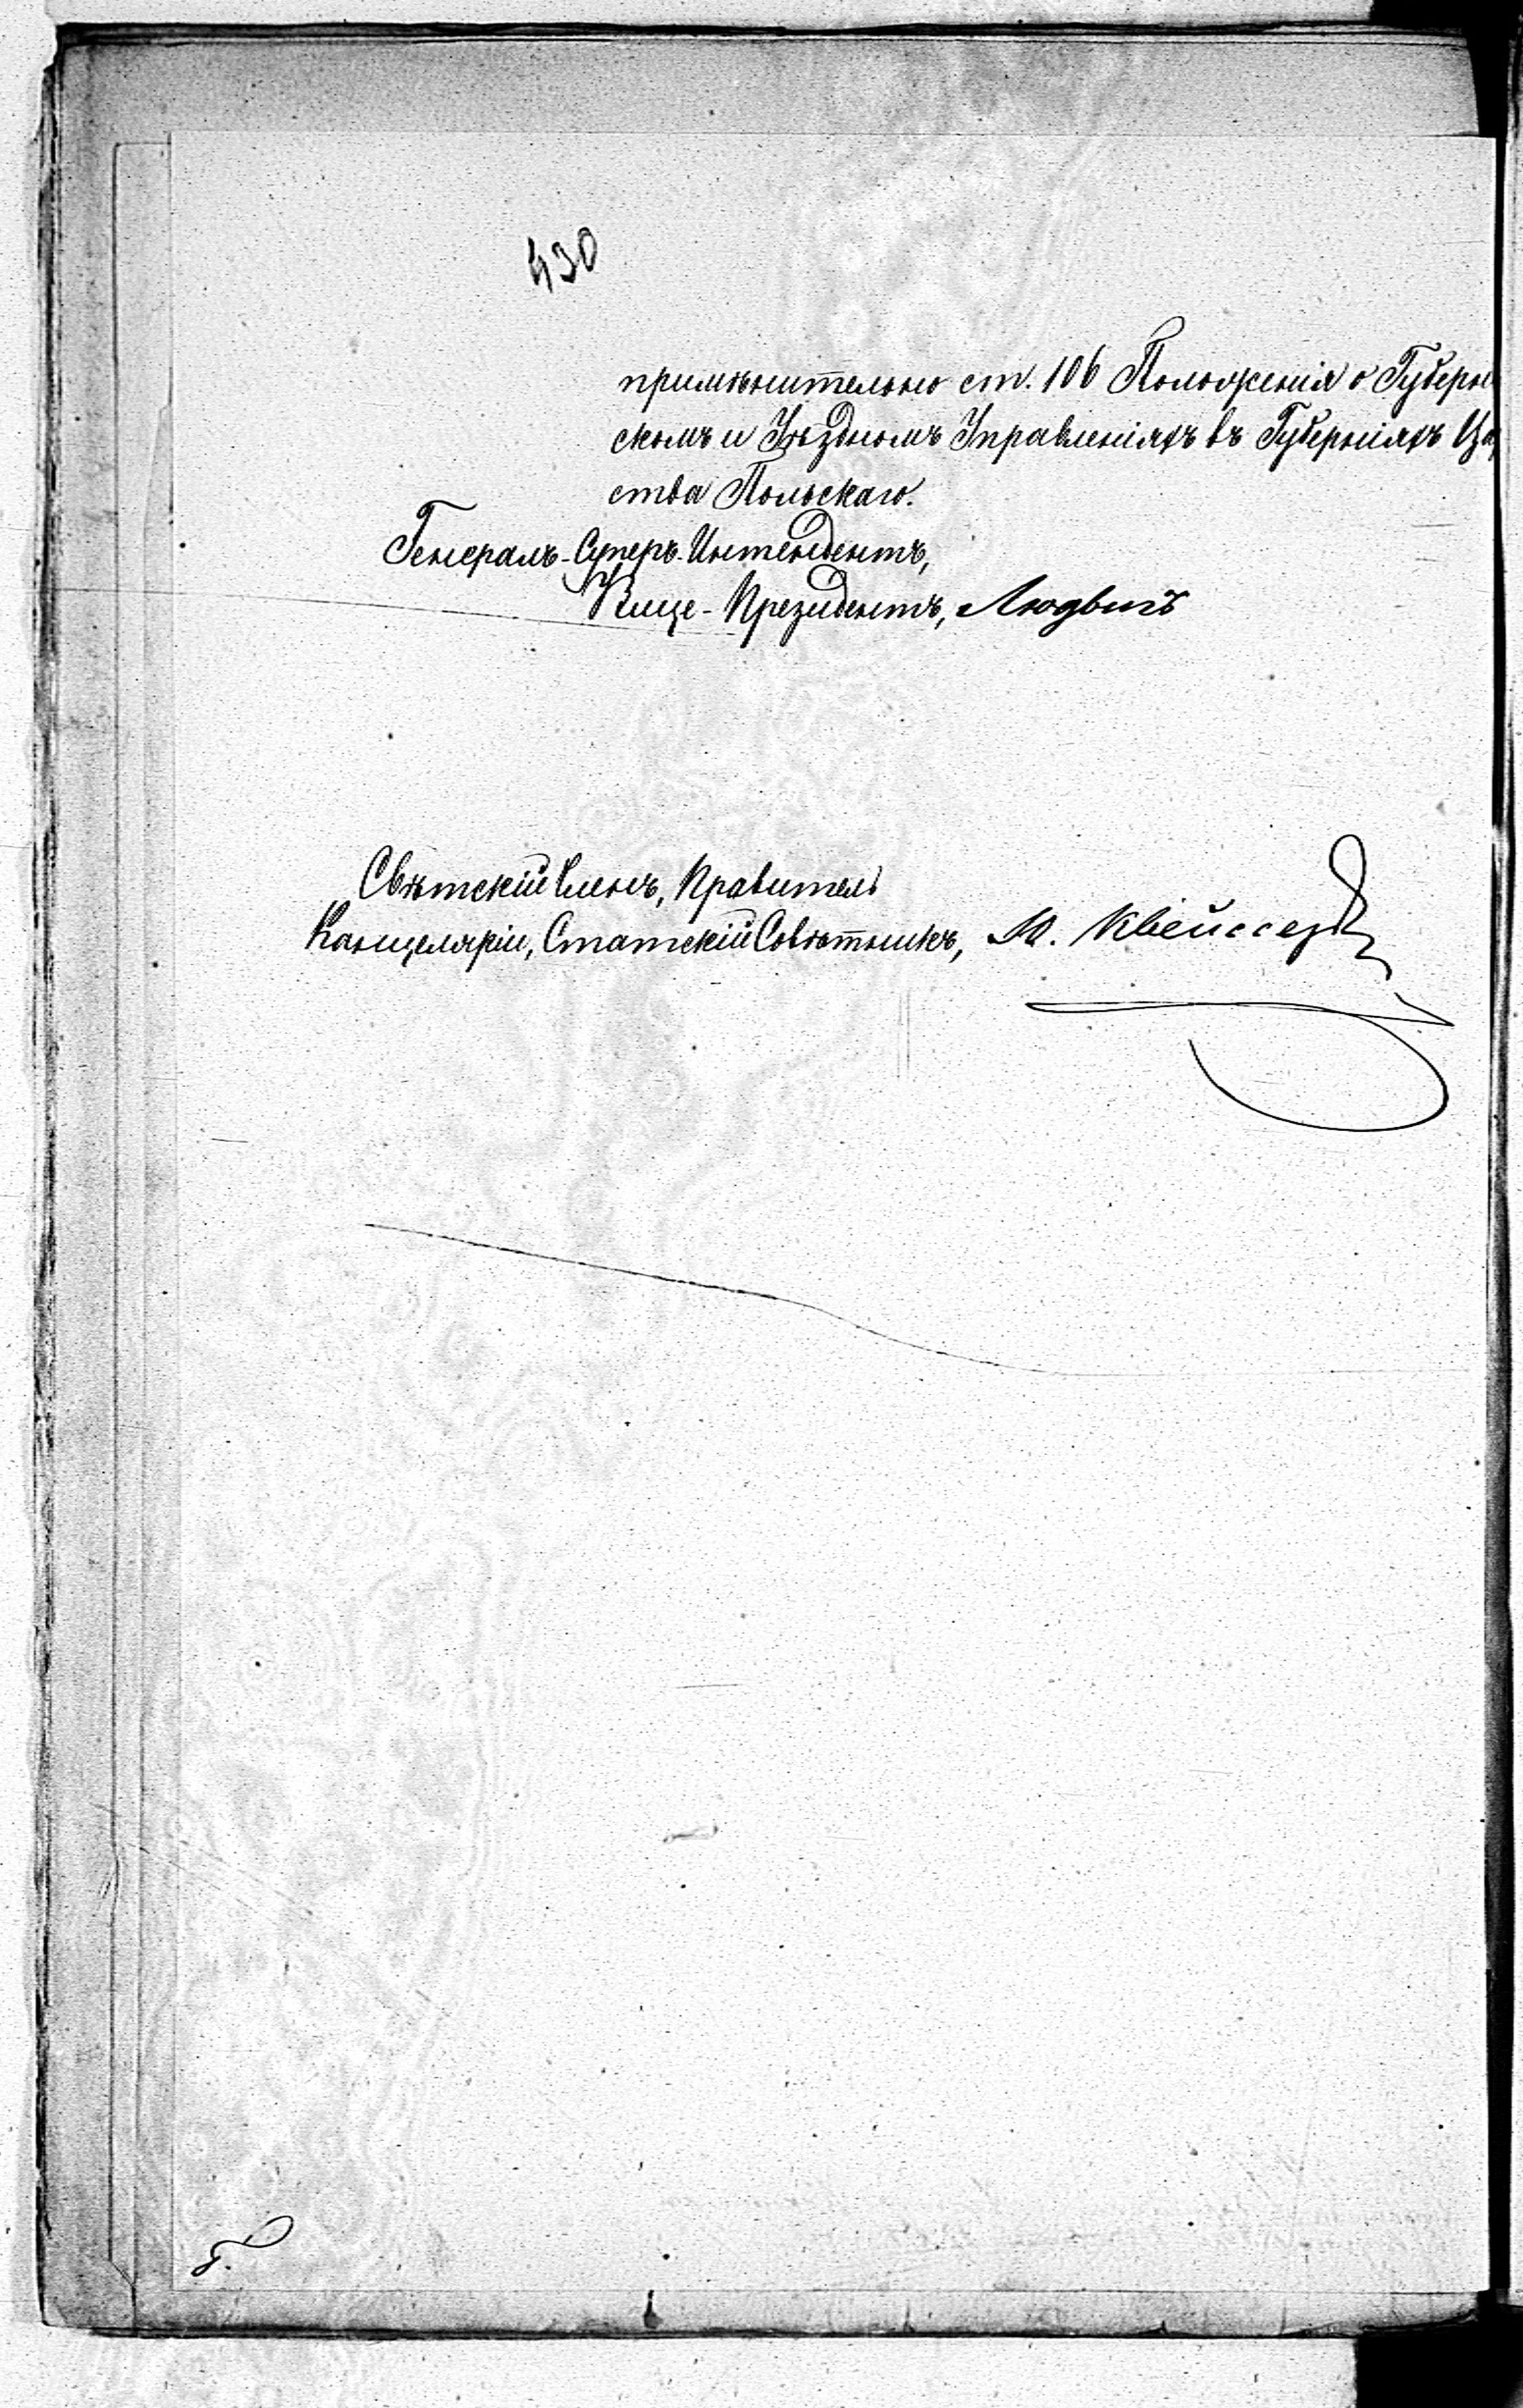 430
примѣнительно ст. 106 Положенія о Губерн
скомъ и Уѣздномъ Управленіяхъ въ Губерніяхъ Ца
ства Польскаго.
Генералъ-Суперъ-Интендентъ,
Вице-Президентъ, Людвигъ
Свѣтскій Членъ, Правитель
Канцеляріи, Статскій Совѣтникъ,